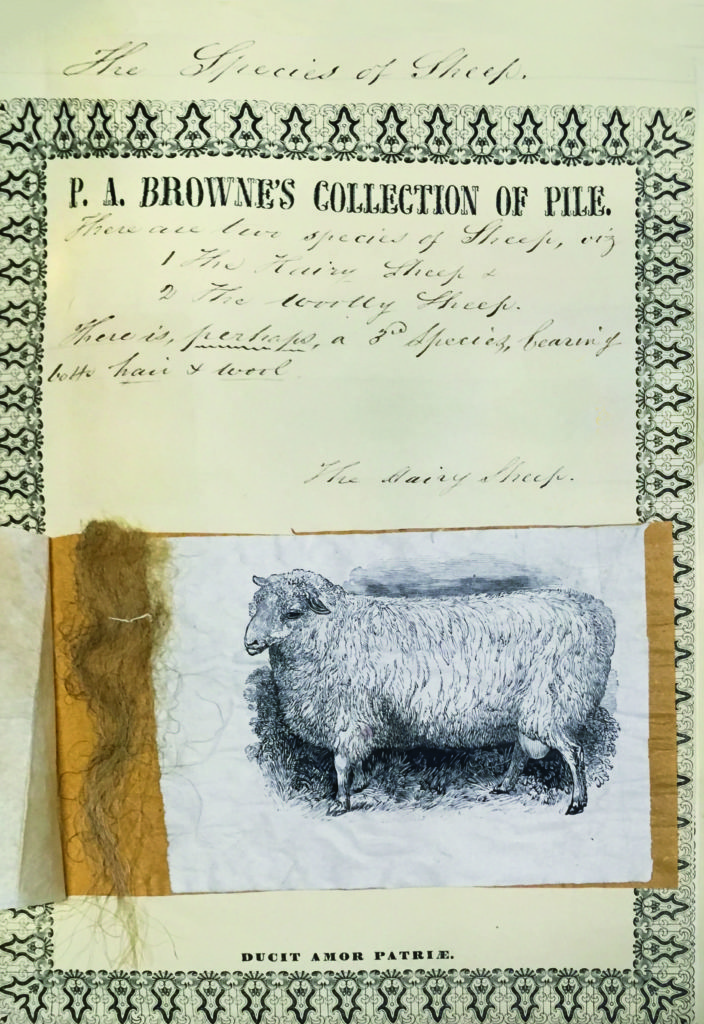 The Species of Sheep.
P. A. BROWNE'S COLLECTION OF PILE.
There are two species of Sheep, viz
1 The Hairy Sheep &
2 The Woolly Sheep.
There is, perhaps, a 3rd Species, bearing
both hair & wool.
The Hairy Sheep.
DUCIT AMOR PATRIÆ.